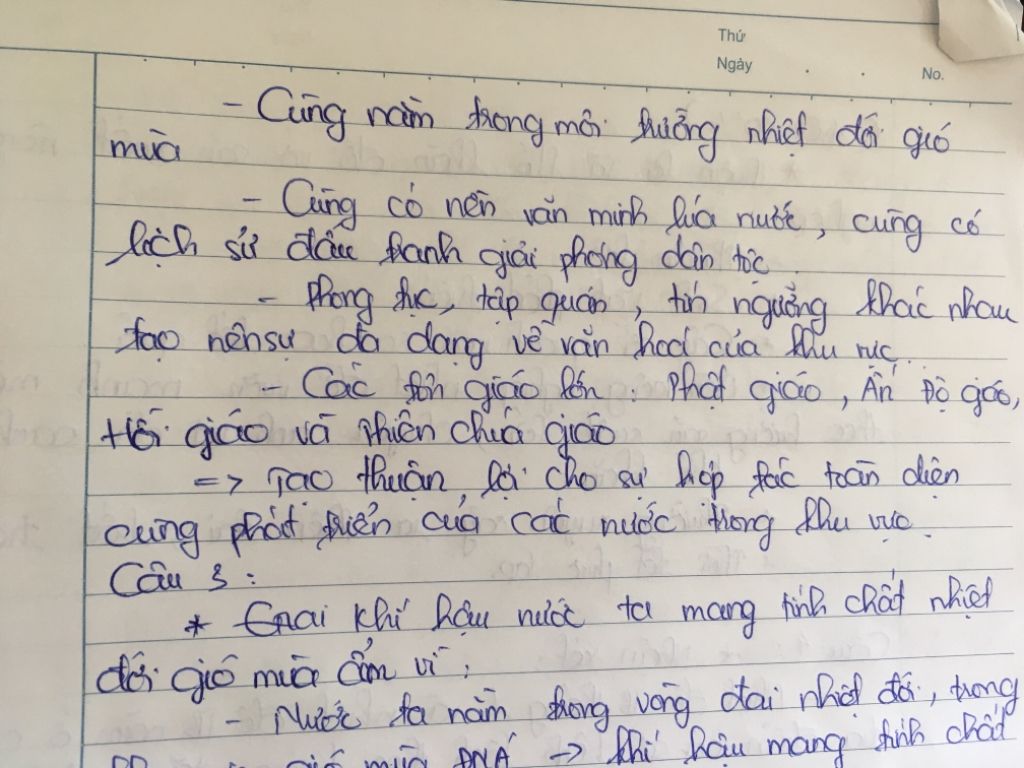 Thứ
Ngày
No.
- Cùng nằm trong môi trường nhiệt đới gió
mùa
- Cùng có nền văn minh lúa nước, cùng có
lịch sử đấu tranh giải phóng dân tộc.
- Phong tục, tập quán, tín ngưỡng khác nhau
tạo nên sự đa dạng về văn hoá của khu vực.
- Các tôn giáo lớn: Phật giáo, Ấn Độ giáo,
Hồi giáo và Thiên chúa giáo
=> Tạo thuận lợi cho sự hợp tác toàn diện
cùng phát triển của các nước trong khu vực.
Câu 3:
* Giai khí hậu nước ta mang tính chất nhiệt
đới gió mùa ẩm vì:
- Nước ta nằm trong vòng đai nhiệt đới, trong
gió mùa ĐNÁ -> khí hậu mang tính chất